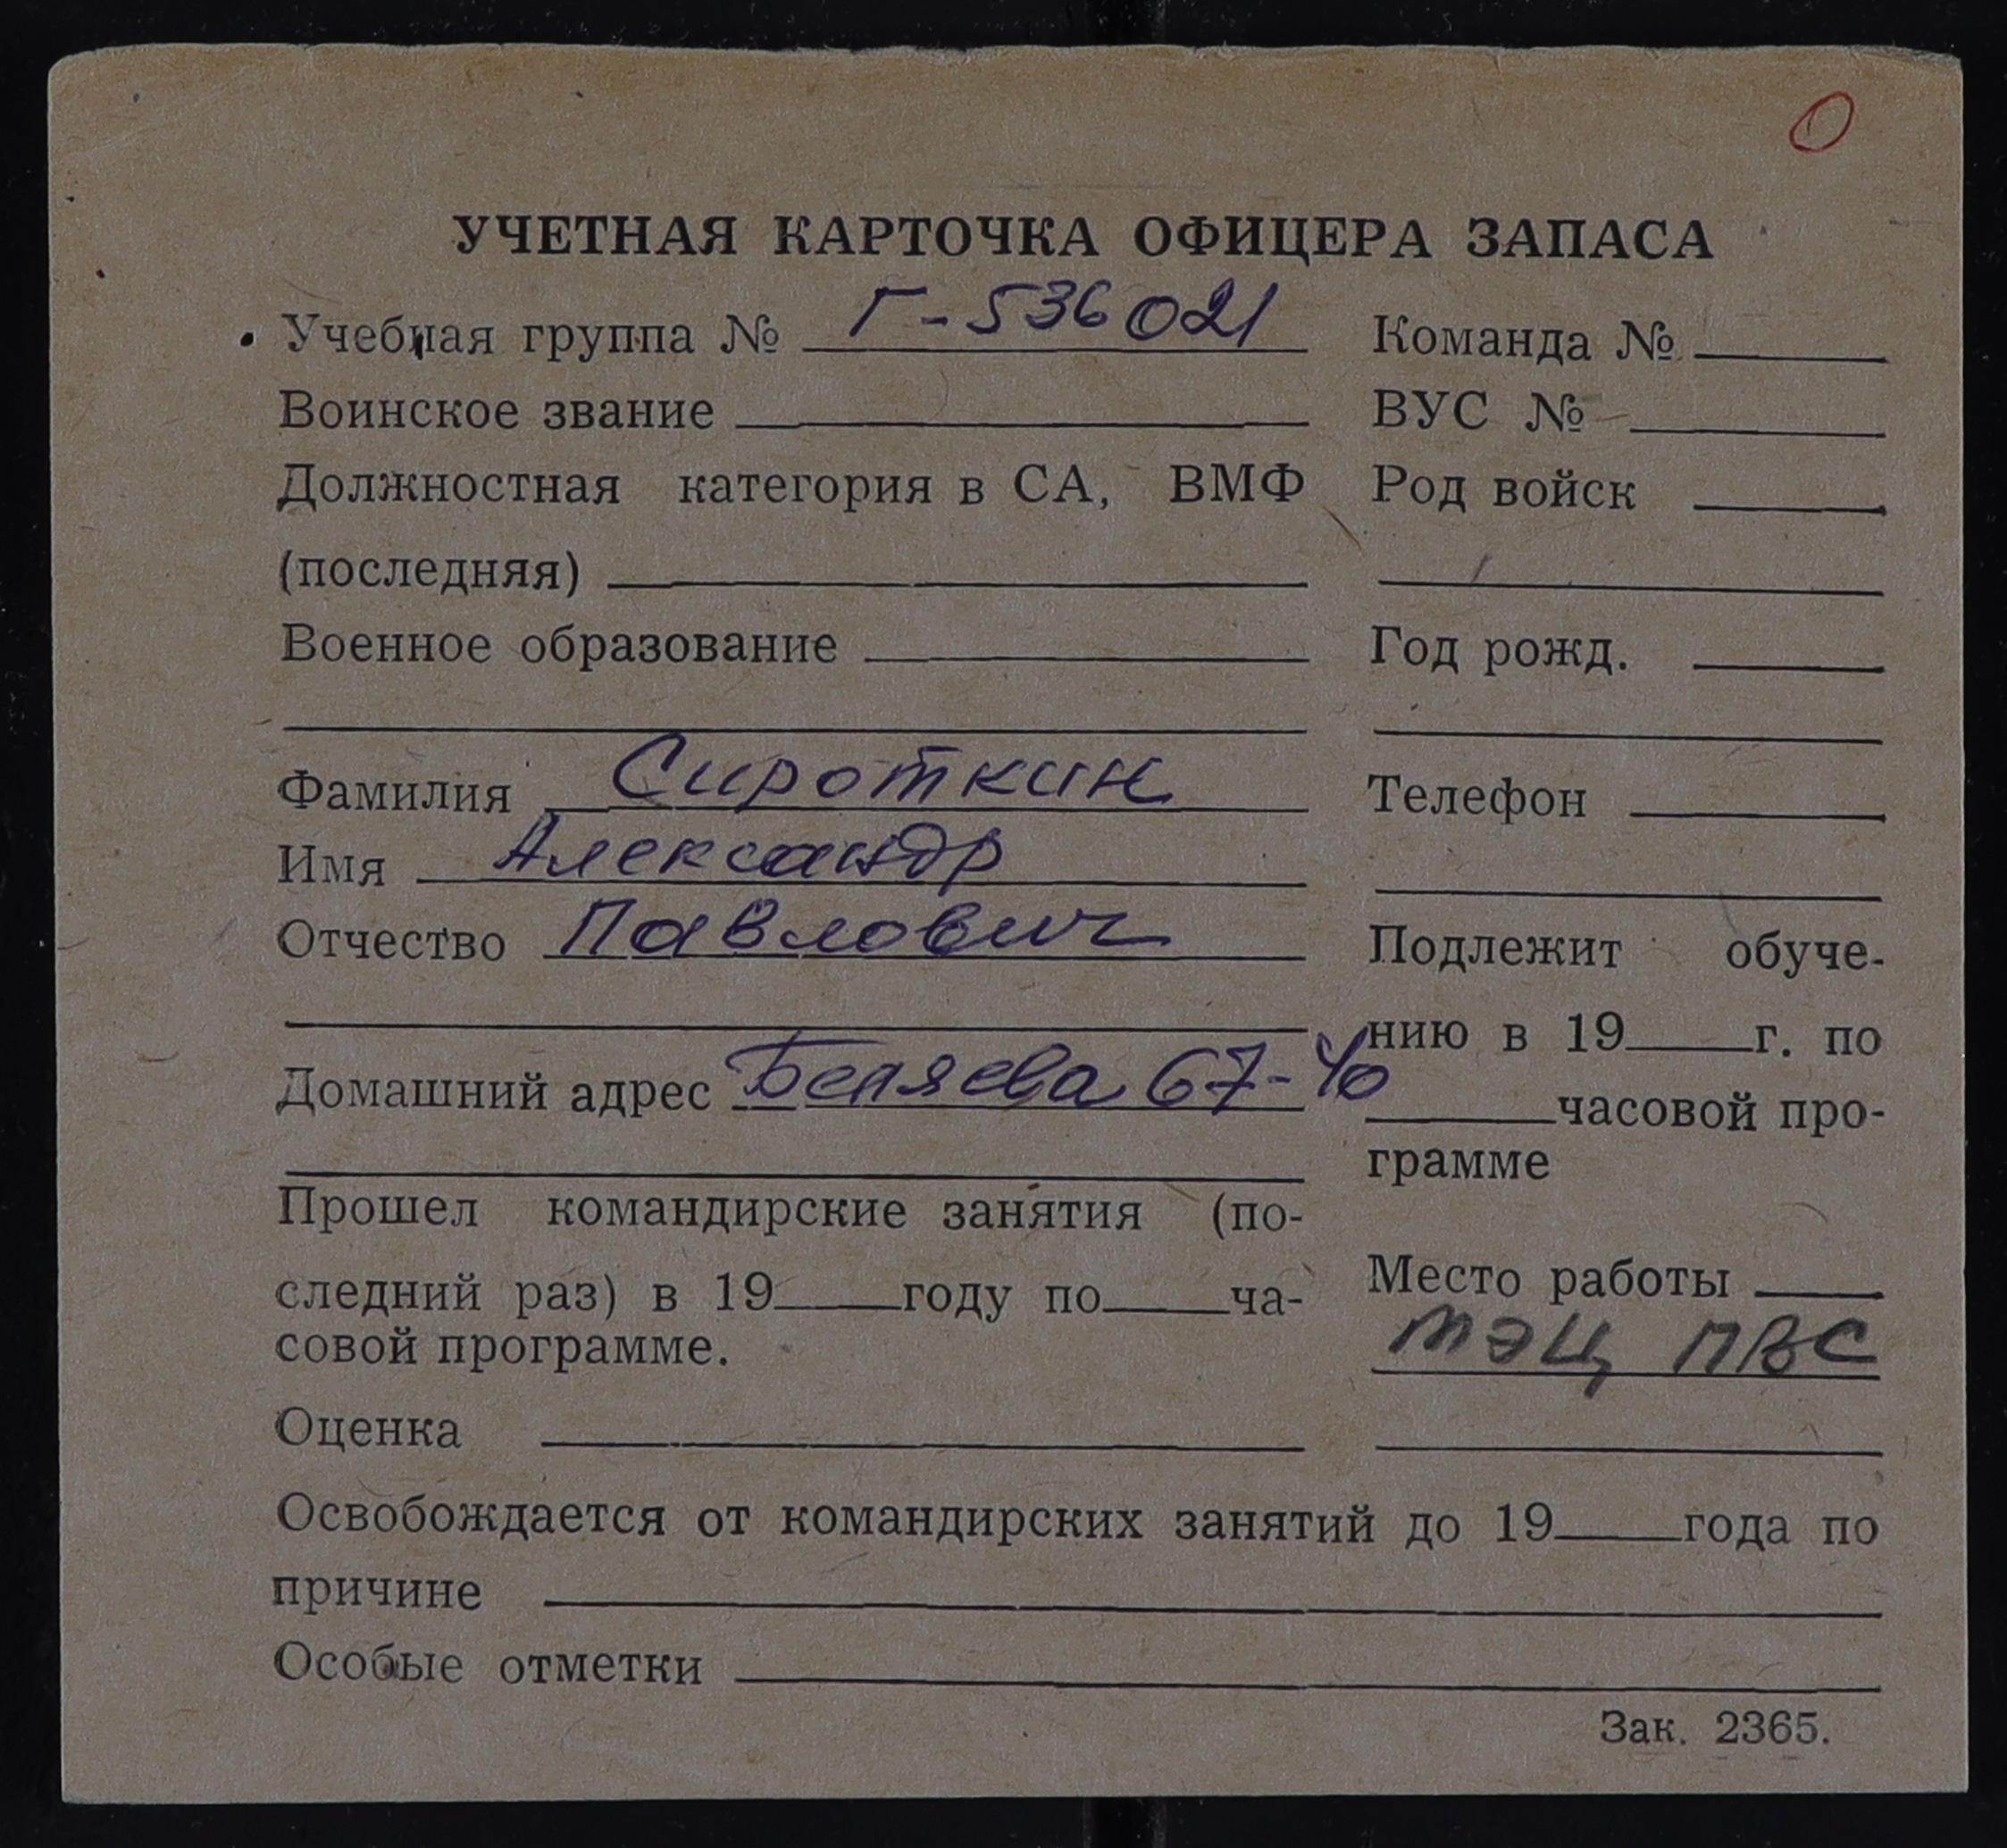 О
УЧЕТНАЯ КАРТОЧКА ОФИЦЕРА ЗАПАСА
Учебная группа № Г-536021
Воинское звание
Должностная категория в СА, ВМФ
(последняя)
Военное образование
Фамилия Сироткин
Имя Александр
Отчество Павлович
Домашний адрес Беляева 67-40
Прошел командирские занятия (по-
следний раз) в 19 году по ча-
совой программе.
Оценка
Команда №
ВУС №
Род войск
Год рожд.
Телефон
Подлежит обуче-
нию в 19 г. по
часовой про-
грамме
Место работы
МЭЦ ПВС
Освобождается от командирских занятий до 19 года по
причине
Особые отметки
Зак. 2365.